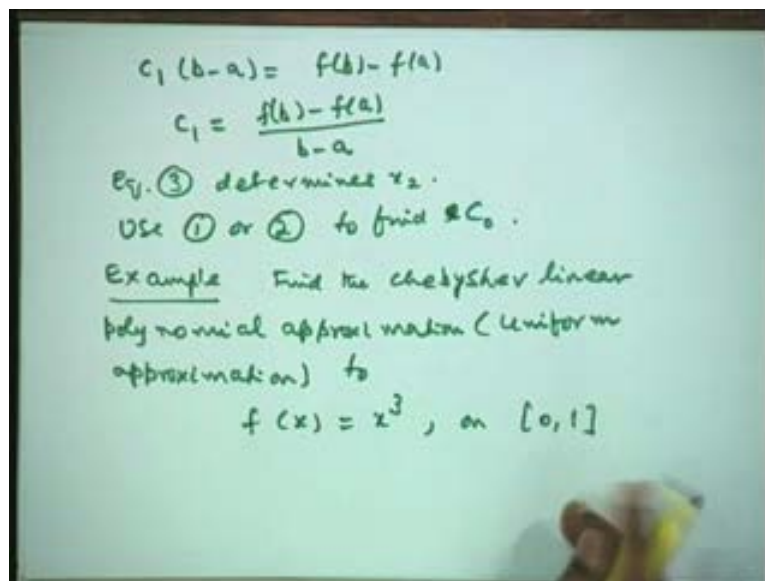 c₁ (b-a) = f(b) - f(a)
c₁ = (f(b) - f(a)) / (b-a)
Eq. ③ determines x₂.
Use ① or ② to find C₀.
Example Find the chebyshev linear
polynomial approximation (uniform
approximation) to
f(x) = x³, on [0,1]